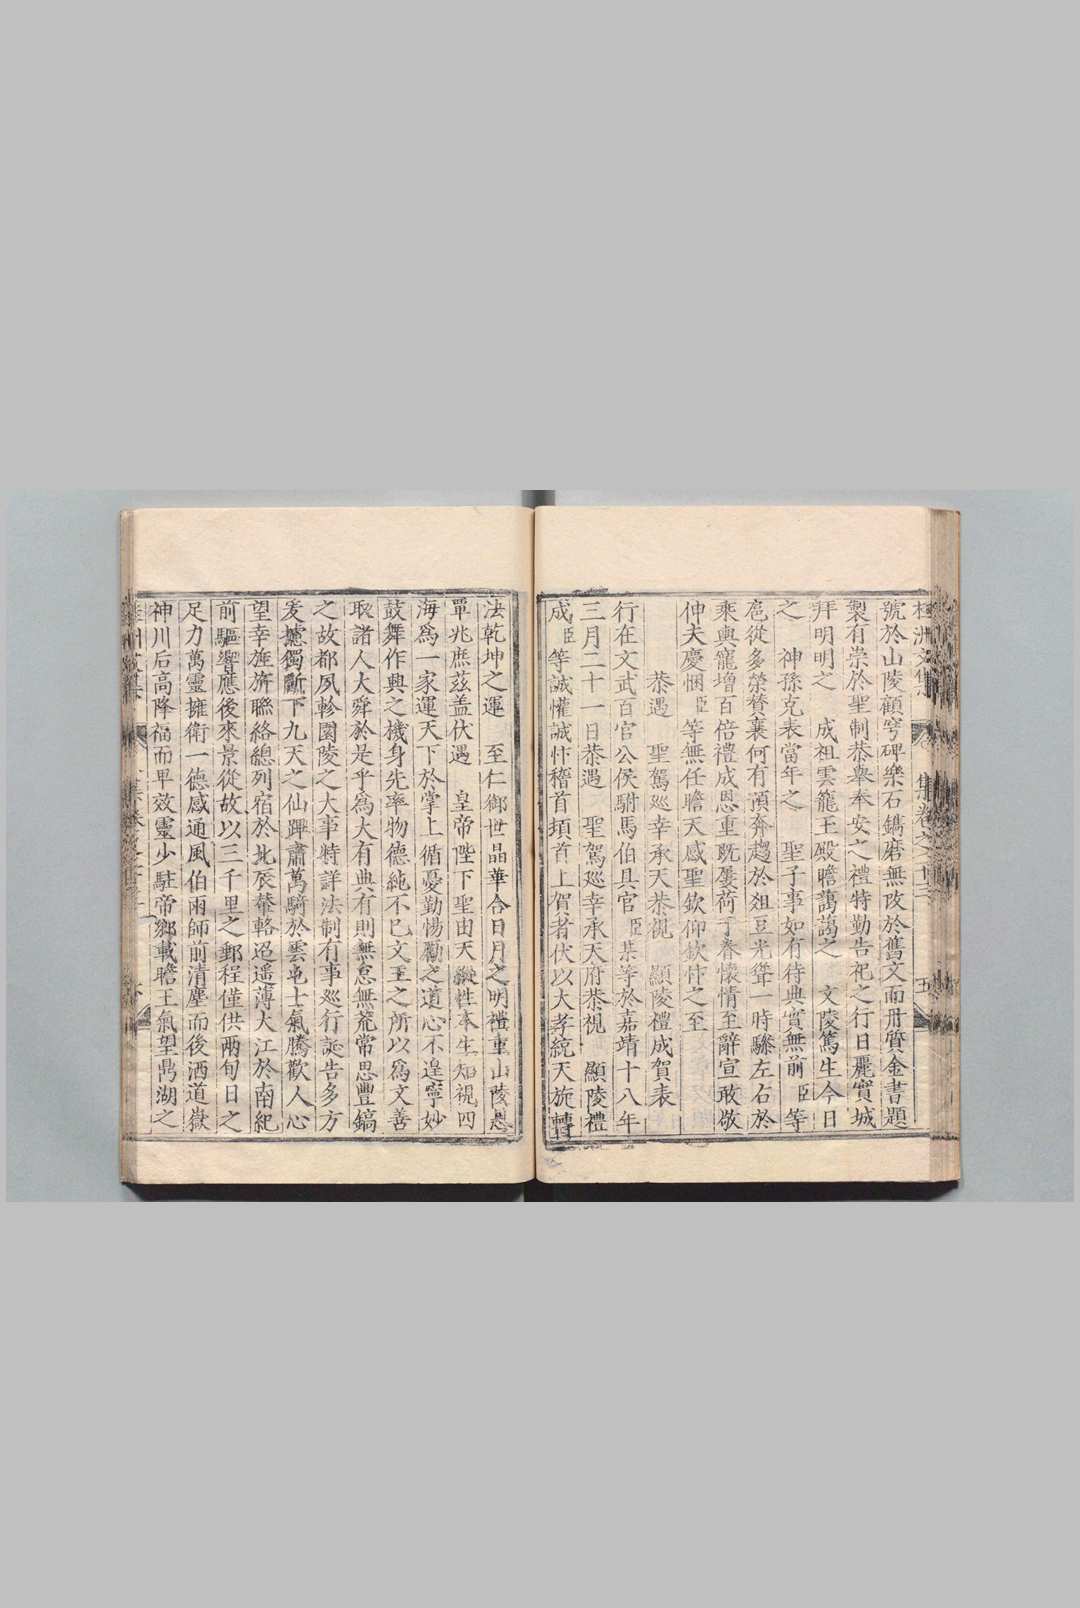 號於山陵顧穹碑樂石鐫磨無改於舊文而冊賮金書題
製有崇於聖制恭舉奉安之禮特勤告祀之行日麗寳城
拜明明之 成祖雲籠王殿瞻藹藹之 文陵篤生今日
之 神孫克表當年之 聖子事如有待典實無前 臣等
扈從多榮賛襄何有預奔趨於俎豆光聳一時驂左右於
乘輿寵增百倍禮成恩重既屢荷于眷懷情至辭宣敢敬
伸夫慶悃 臣等無任瞻天感聖欽仰欽忭之至
恭遇 聖駕廵幸承天恭視 顯陵禮成賀表
行在文武百官公侯駙馬伯具官 臣某等於嘉靖十八年
三月二十一日恭遇 聖駕廵幸承天府恭視 顯陵禮
成 臣等誠懽誠忭稽首頓首上賀者伏以大孝統天旋轉
法乾坤之運 至仁御世晶華合日月之明禮重山陵恩
覃兆庶茲盖伏遇 皇帝陛下聖由天縱性本生知視四
海爲一家運天下於掌上循憂勤惕勵之道心不遑寧妙
鼓舞作興之機身先率物德純不已文王之所以爲文善
取諸人大舜於是乎爲大有典有則無怠無荒常思豐鎬
之故都夙軫園陵之大事特詳法制有事廵行誕告多方
爰攄獨斷下九天之仙蹕肅萬騎於雲屯士氣騰歡人心
望幸旌旂聯絡總列宿於北辰輦輅迢遥薄大江於南紀
前驅響應後來景從故以三千里之郵程僅供兩旬日之
足力萬靈擁衛一德感通風伯雨師前清塵而後洒道嶽
神川后高降福而畢效靈少駐帝鄉載瞻王氣望鼎湖之